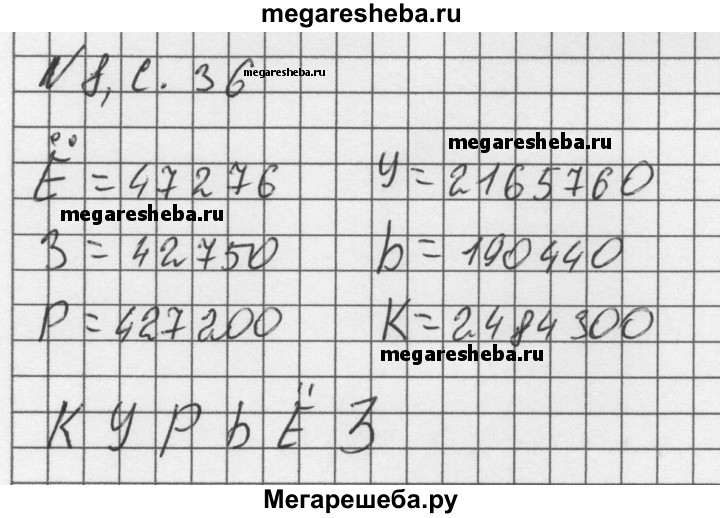 megaresheba.ru
N 8, с. 36 megaresheba.ru
Ё = 47276 У = 2165760
megaresheba.ru
megaresheba.ru
З = 42750 Ь = 190440
Р = 427200 К = 2484300
megaresheba.ru
К У Р Ь Ё З
Мегарешеба.ру